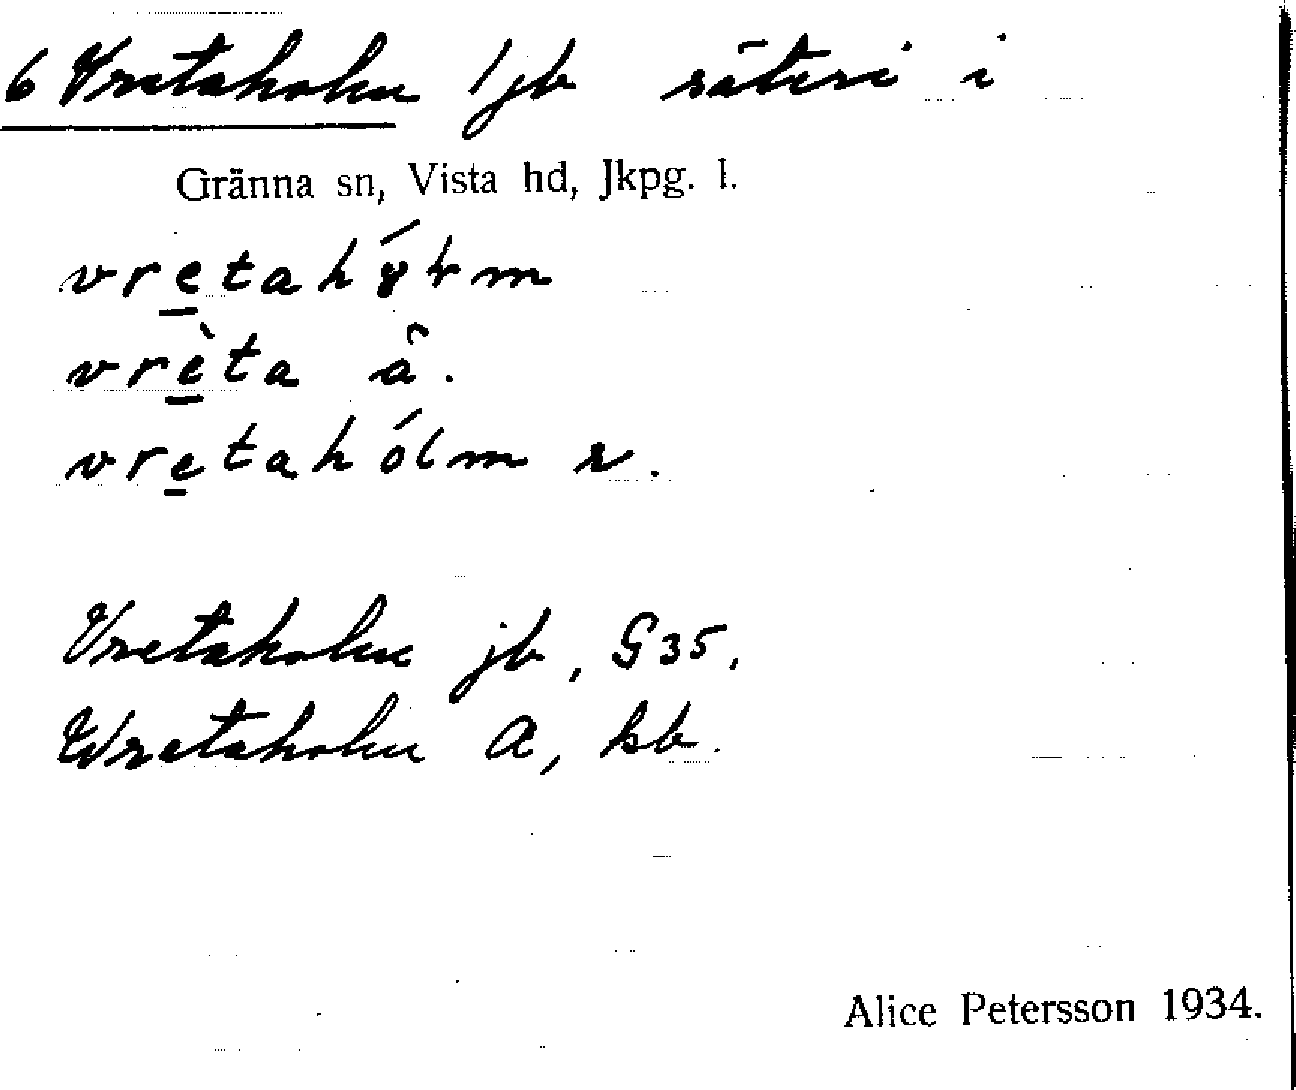 6 Vretaholm 1 jb säteri i
Gränna sn, Vista hd, Jkpg. l.
vretah
vrèta â.
vretahólm r.
Vretaholm jb, G35.
Wretaholm A, kb.
Alice Petersson 1934.